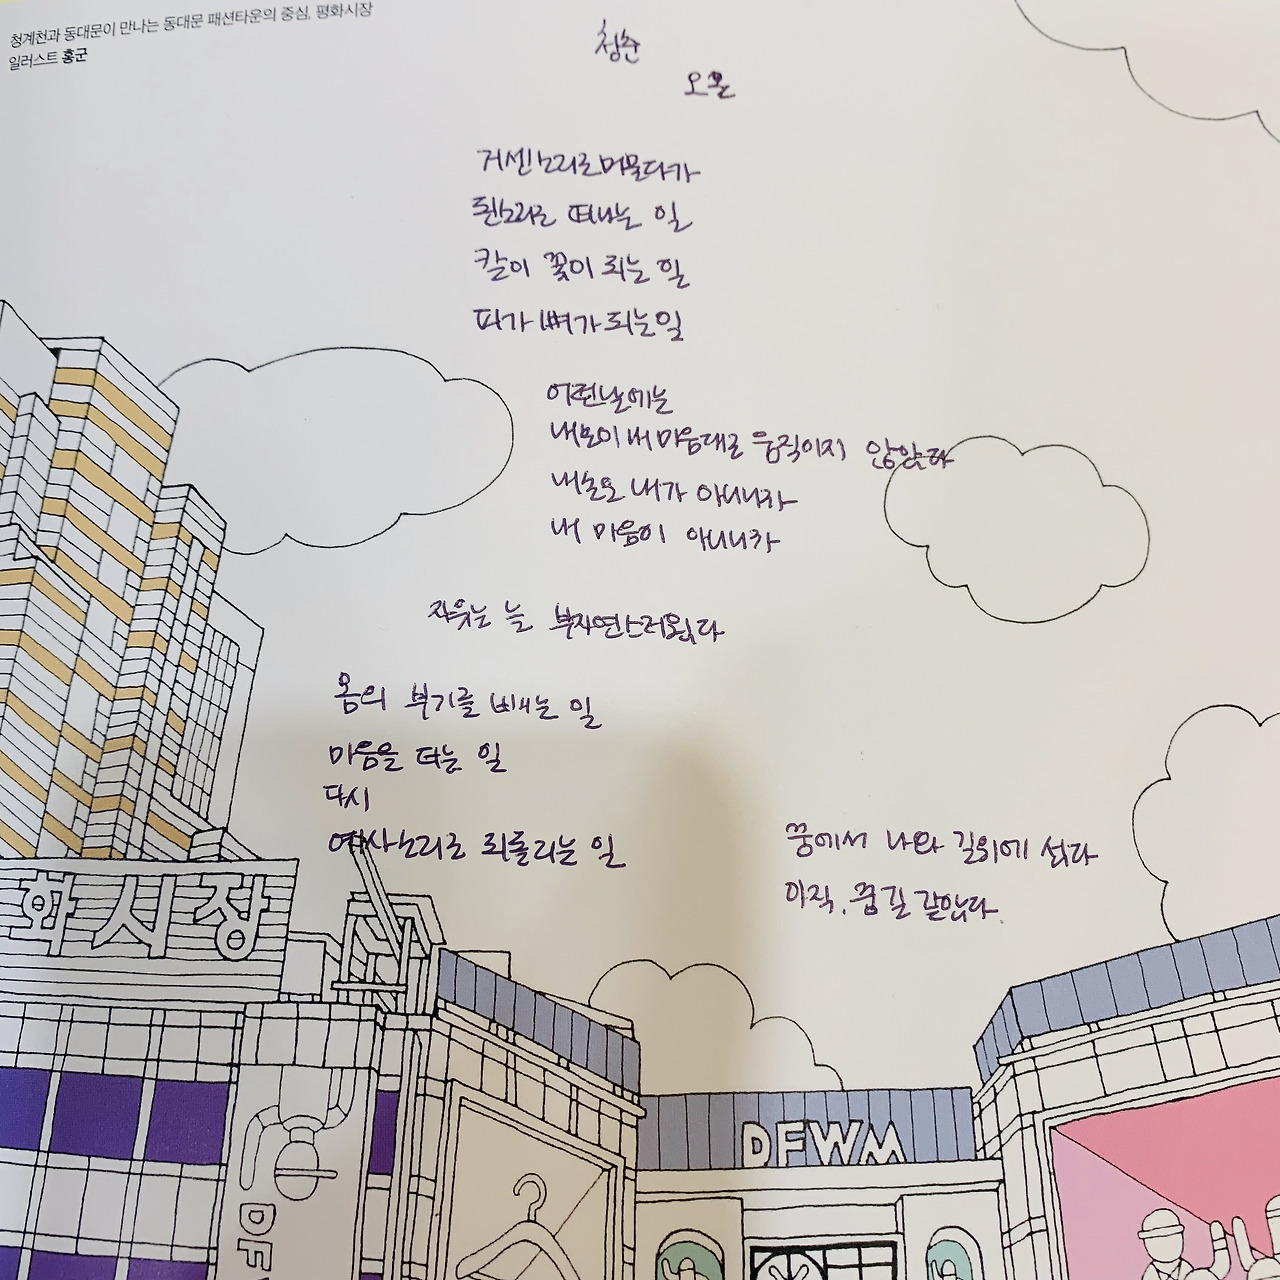 청계천과 동대문이 만나는 동대문 패션타운의 중심, 평화시장
일러스트 홍군
청춘
오은
거센소리로 머물다가
된소리로 떠나는 일
칼이 꽃이 되는 일
피가 뼈가 되는 일
어떤 날에는
내 몸이 내 마음대로 움직이지 않았다
내 손은 내가 아니니까
내 마음이 아니니까
자유는 늘 부자연스러웠다
몸의 부기를 빼는 일
마음을 더는 일
다시
예사소리로 되돌리는 일
꿈에서 나와 길 위에 섰다
아직, 꿈길 같았다
화시장
DFWM